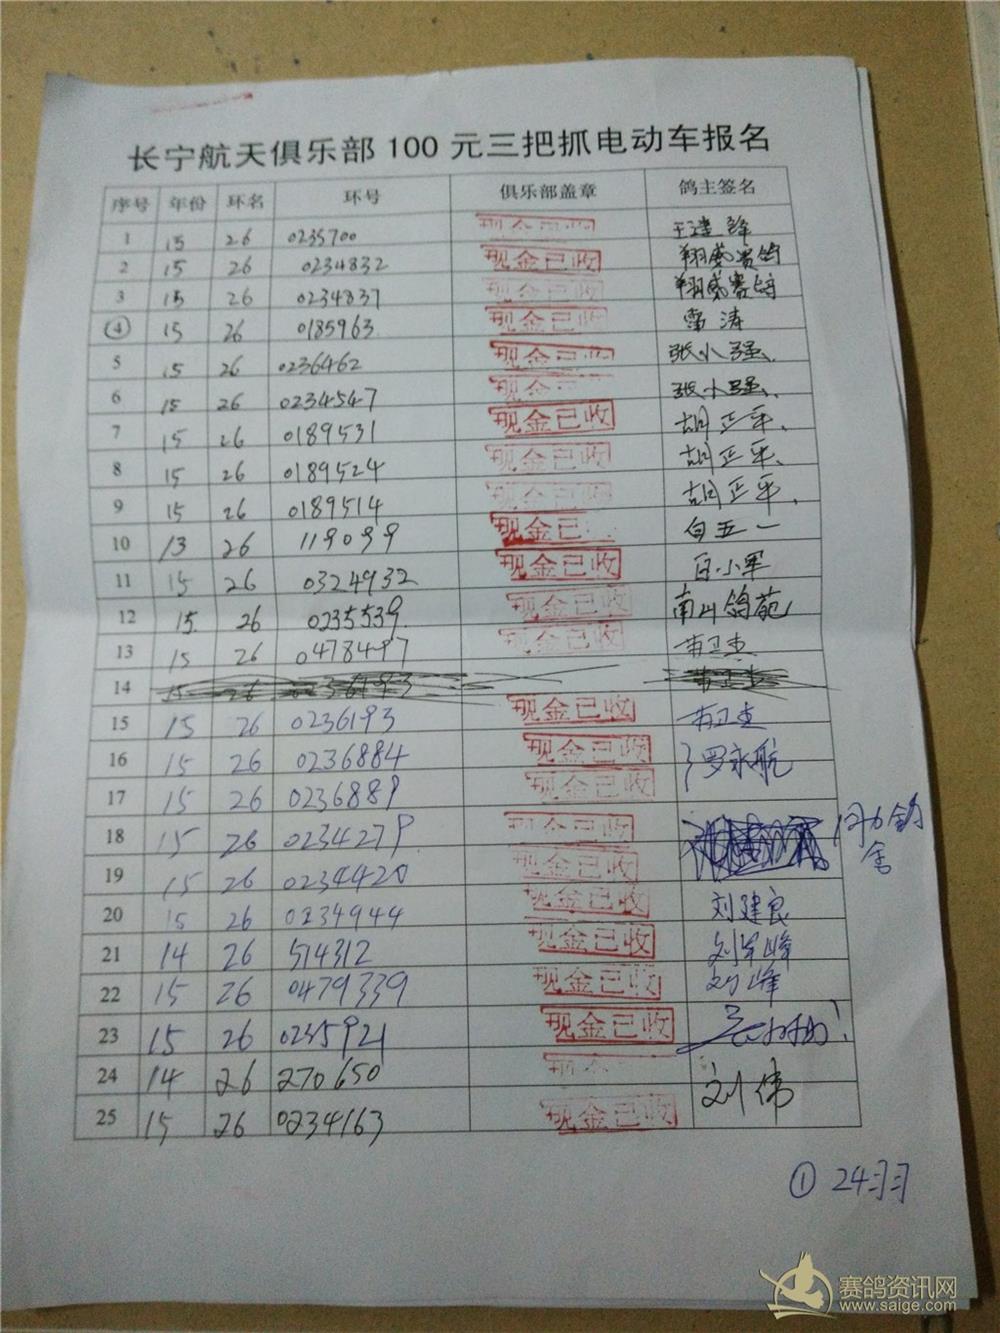 长宁航天俱乐部 100 元三把抓电动车报名
序号 年份 环名 环号 俱乐部盖章 鸽主签名
1 15 26 0235700 现金已收
2 15 26 0234832 现金已收 翔威赛鸽
3 15 26 0234837 现金已收 翔威赛鸽
4 15 26 0185963 现金已收 雷涛
5 15 26 0236462 现金已收 张小强
6 15 26 0234547 现金已收 张小强
7 15 26 0189531 现金已收 胡正平
8 15 26 0189524 现金已收 胡正平
9 15 26 0189514 现金已收 胡正平
10 13 26 119099 现金已 白五一
11 15 26 0324932 现金已收 白小军
12 15 26 0235539 现金已收 南山鸽苑
13 15 26 0478497 现金已收 苗卫杰
14 15 26
15 15 26 0236193 现金已收 苗卫杰
16 15 26 0236884 现金已收 罗永航
17 15 26 0236889 现金已收
18 15 26 0234279 现金已收
19 15 26 0234420 现金已收
20 15 26 0234944 现金已收 刘建良
21 14 26 514312 现金已收 刘军峰
22 15 26 0479339 现金已收 刘峰
23 15 26 0235921 现金已收
24 14 26 270650 现金已 刘伟
25 15 26 0234163 现金已收
① 24羽
赛鸽资讯网
www.saige.com